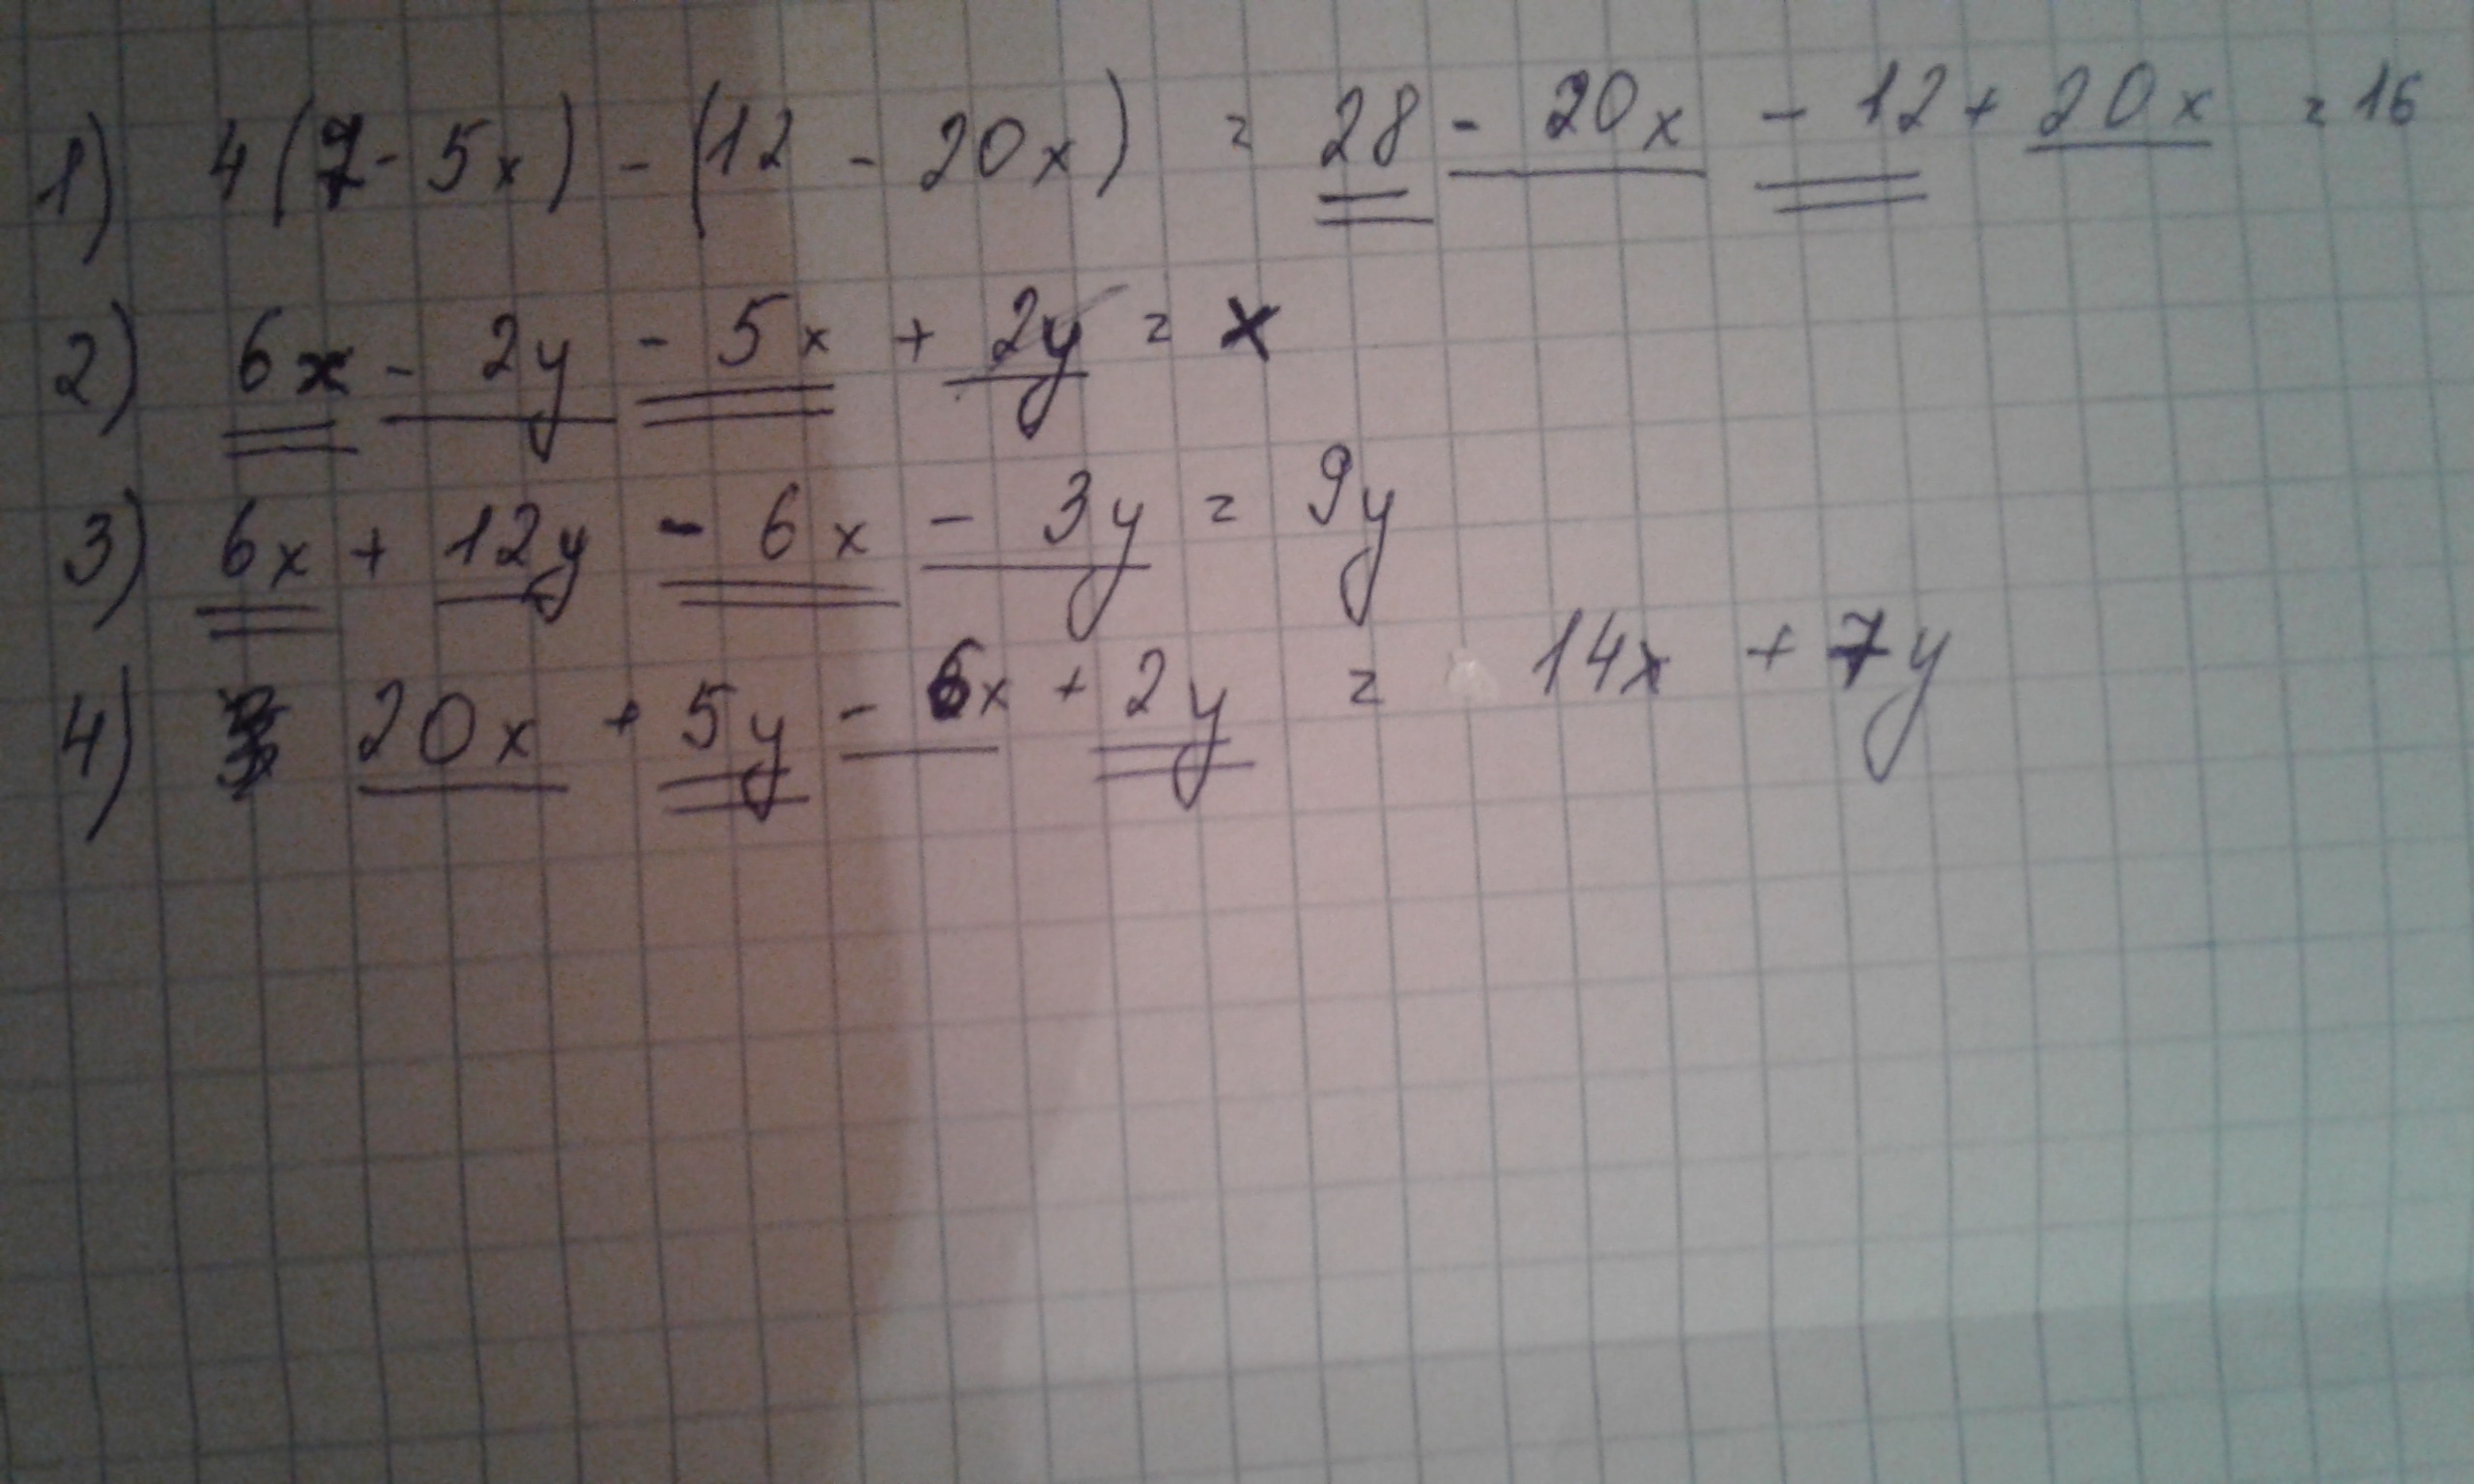 1) 4(7-5x)-(12-20x) = 28-20x-12+20x = 16
2) 6x-2y-5x+2y = x
3) 6x+12y-6x-3y = 9y
4) 20x+5y-6x+2y = 14x+7y